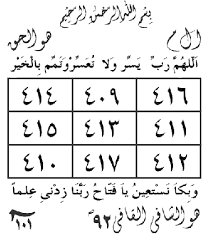 بسم الله الرحمن الرحيم
ا ل م هو الحق
اَللّٰهُمَّ رَبِّ يَسِّرْ وَلَا تُعَسِّرْ وَتَمِّمْ بِالْخَيْرِ
٤١٤ ٤٠٩ ٤١٦
٤١٥ ٤١٣ ٤١١
٤١٠ ٤١٧ ٤١٢
وَبِكَا نَسْتَعِينُ يَا فَتَّاحُ رَبَّنَا زِدْنِي عِلْمًا
هو الشافي الكافي ٩٢ ١٠١